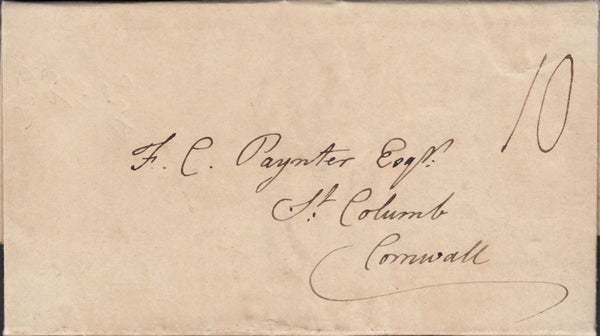 10
F. C. Paynter Esqr.
St. Columb
Cornwall